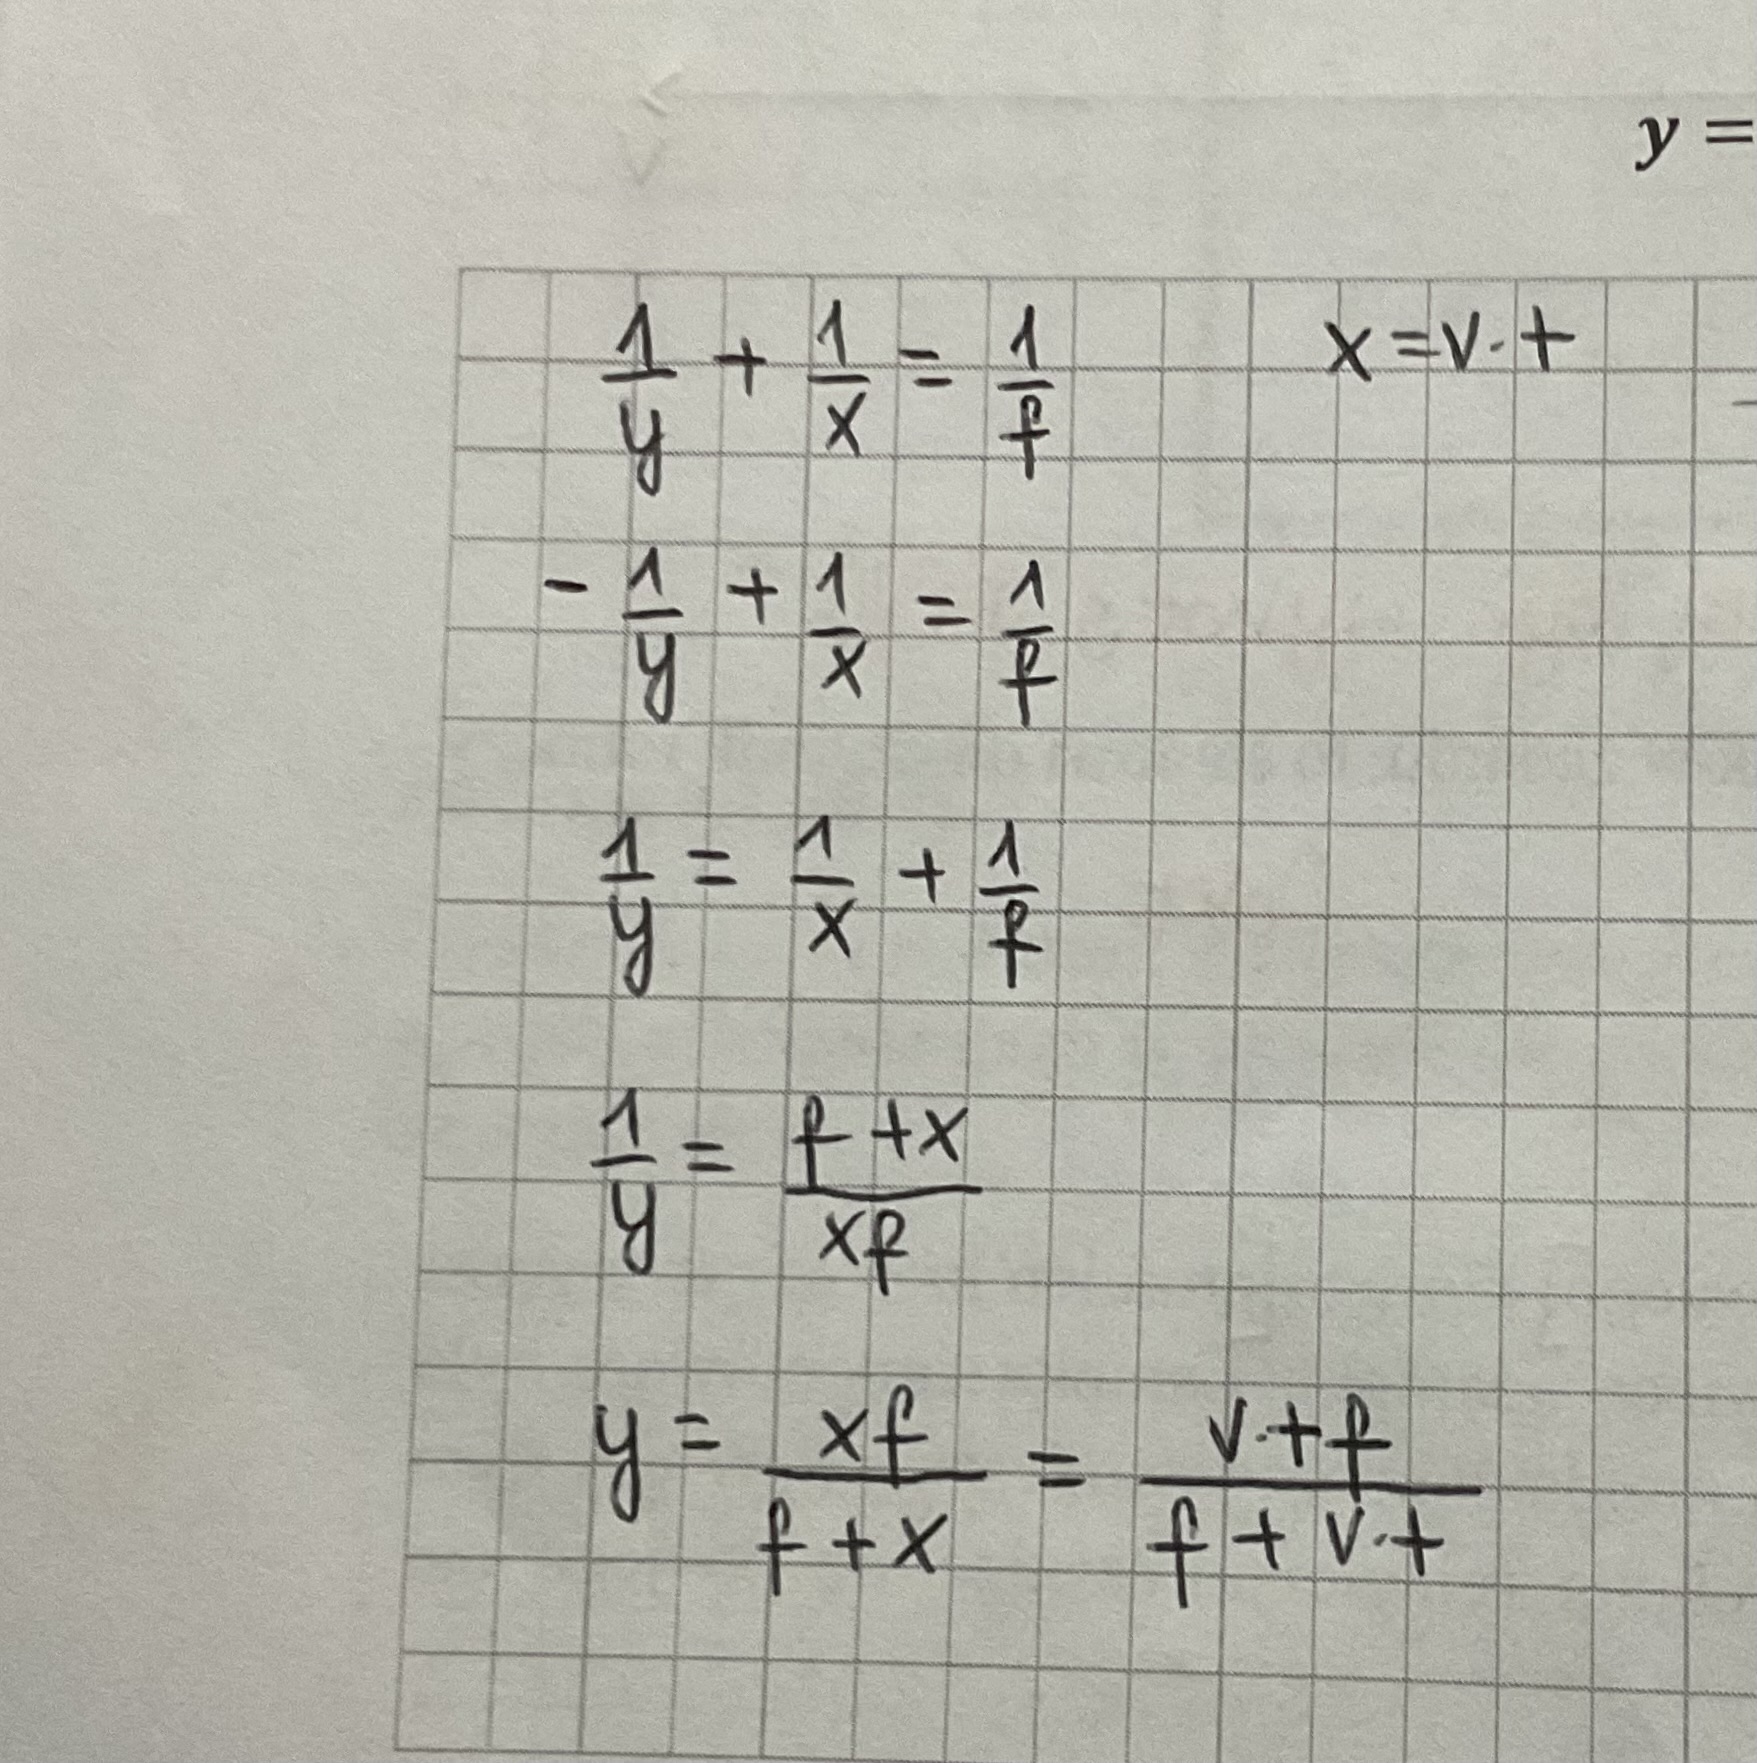 y =
1/y + 1/x = 1/f    x = v·t
- 1/y + 1/x = 1/f
1/y = 1/x + 1/f
1/y = (f + x)/(xf)
y = (xf)/(f + x) = (v·t f)/(f + v·t)